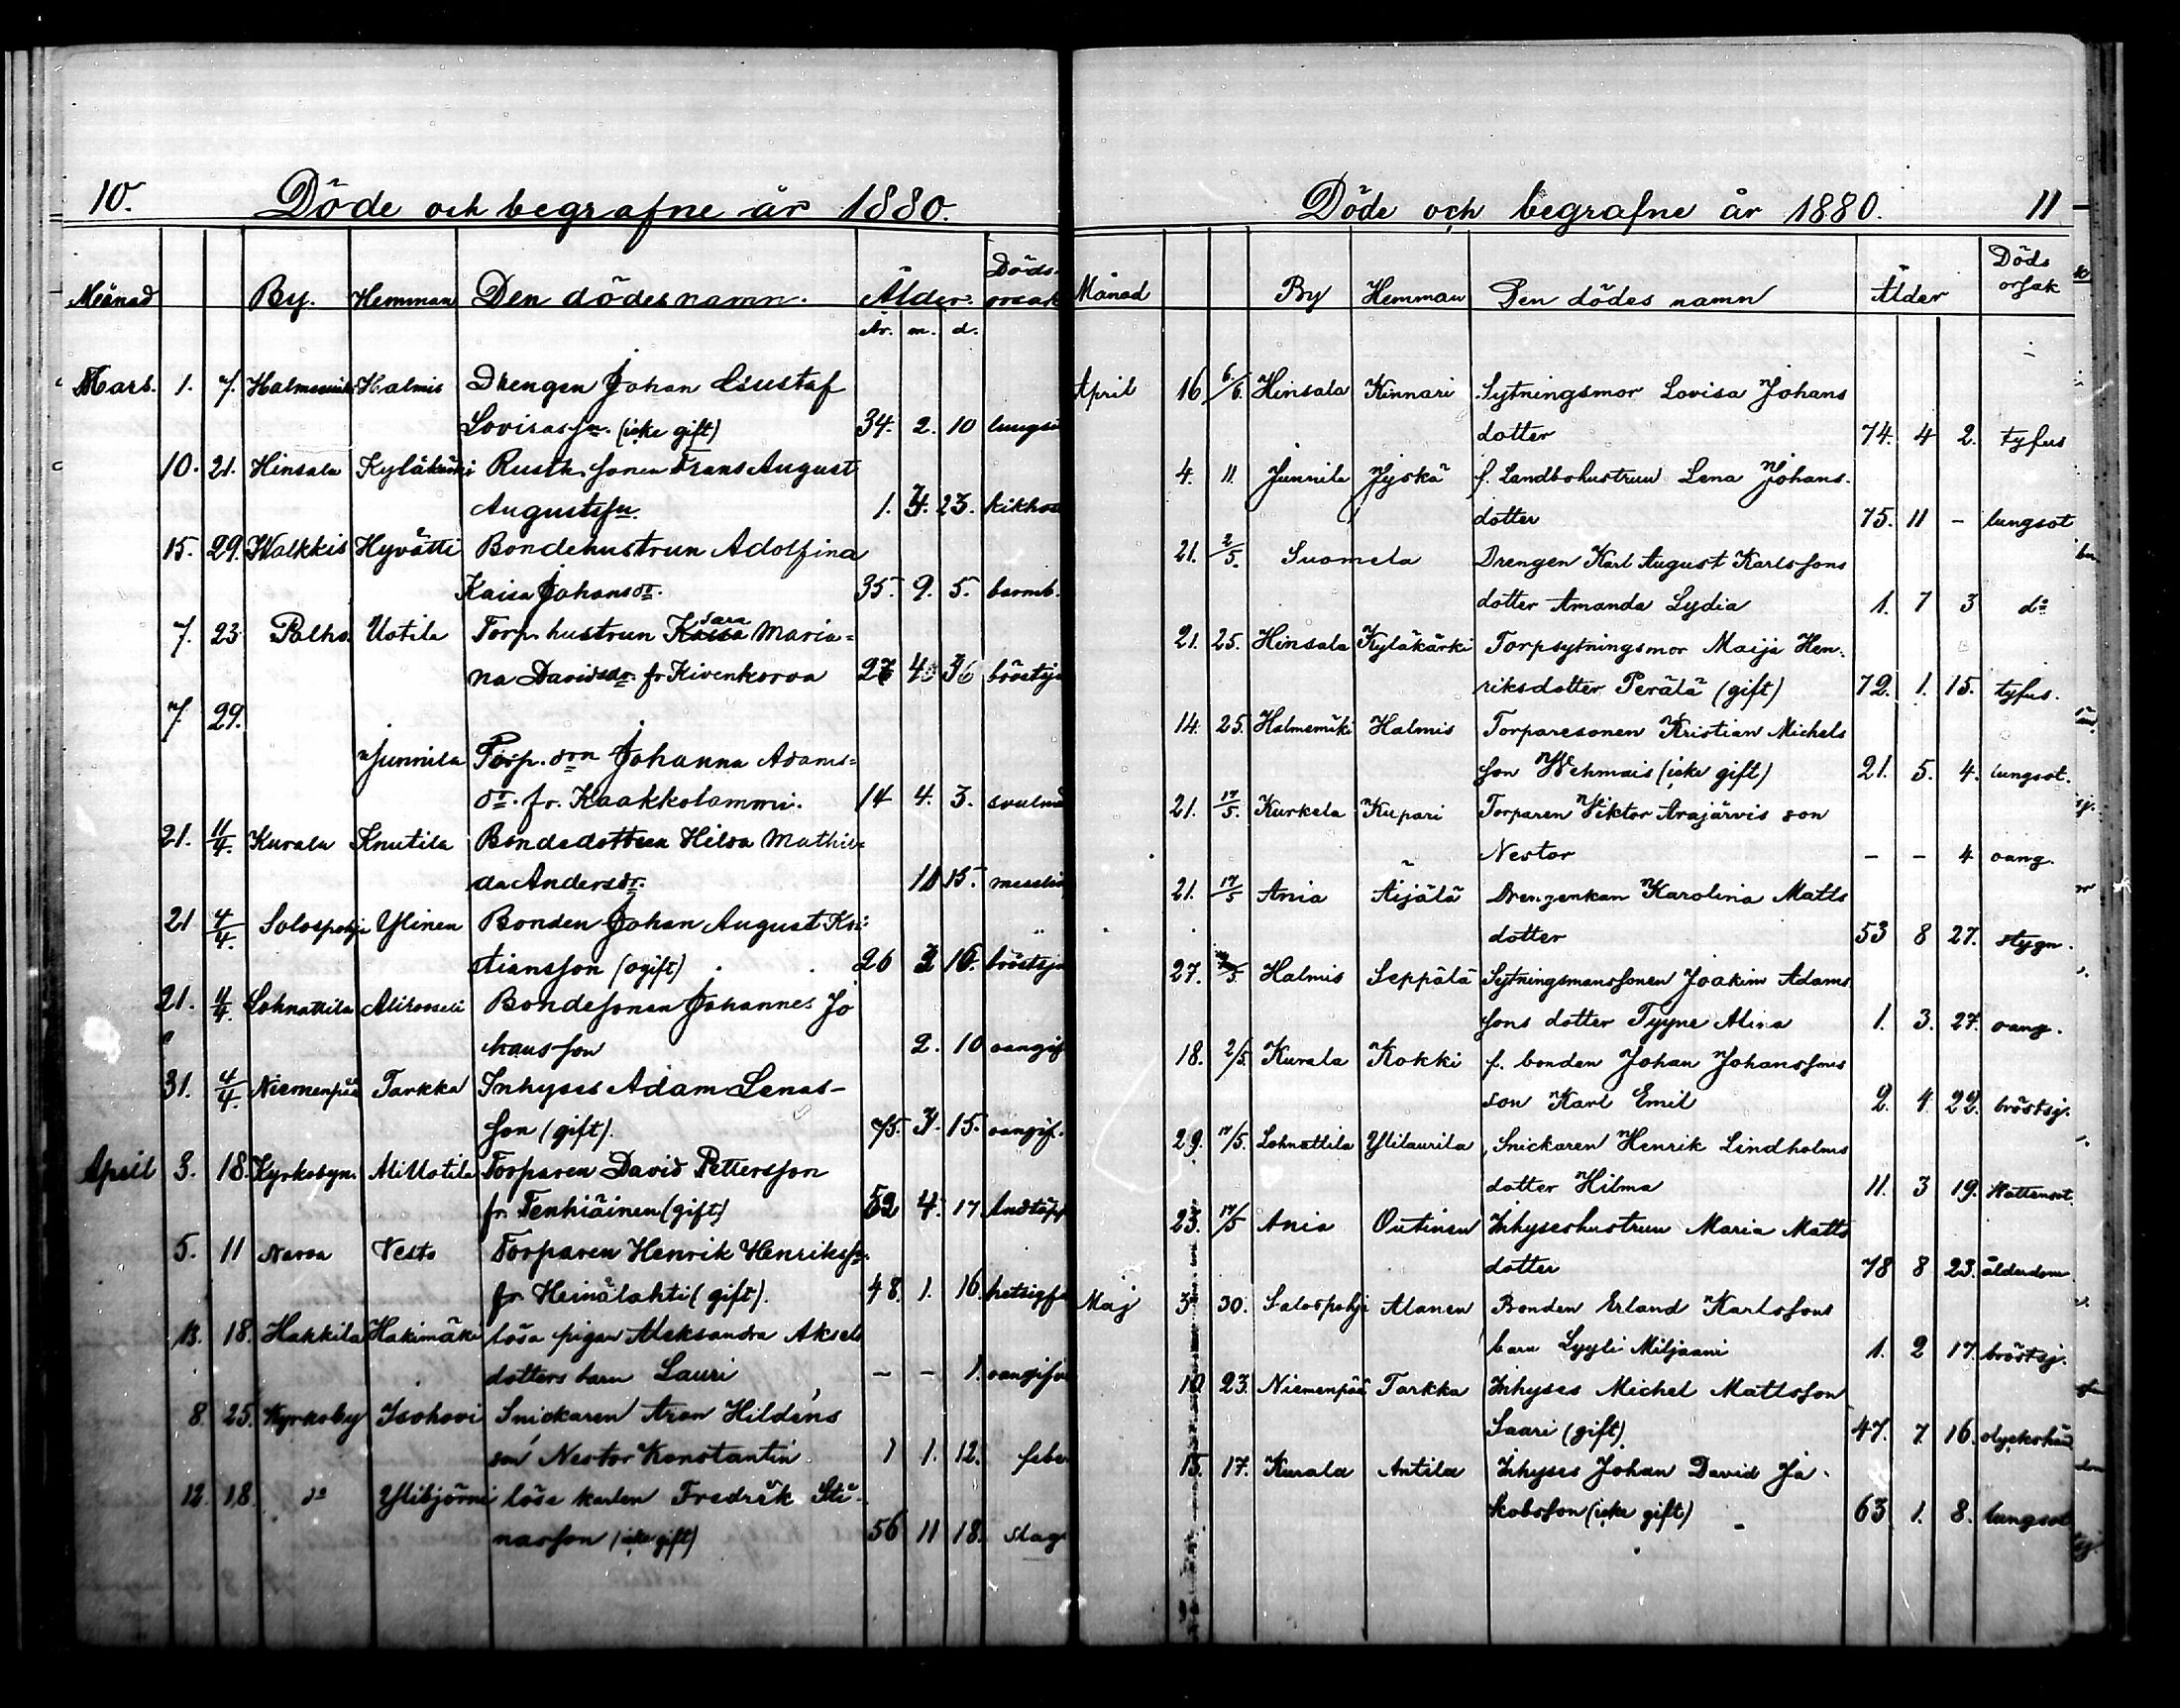 10.
Döde och begrafne år 1880.
Månad By. Hemman Den dödes namn. Ålder. Döds-
orsak
År. m. d.
Mars. 1. 7. Halmis Drengen Johan Gustaf
Lovisasson. (icke gift) 34. 2. 10
10. 21. Hinsala Kyläkärki Rusth. sonen Frans August
Augustssn. 1. 23. kikhos
15. 29. Walkkis Hyvätti Bondehustrun Adolfina
Kaisa Johansdr. 35. 9. 5. barnb.
7. 23 Palho Uotila Torp. hustrun Sara Maria-
na Davidsdr. fr Kivenkorva
7. 29.
Junnila Torp. drn Johanna Adams-
dr. fr. Kaakkolammi. 14 4. 3.
21. 11/4. Kurala Knutila Bondedottren Hilda Mathil-
da Andersdr. 15.
21 4/4. Salospohja Ylinen Bonden Johan August Kri-
stiansson (ogift) 26 16. bröstsj
21. 4/4. Lohnattila Alirosseli Bondesonen Johannes Jo
hansson 2. 10 oangif
31. 4/4. Niemenpää Tarkka Inhyses Adam Lenas-
son (gift). 75. 15. oangif.
April 3. 18. Kyrkobyn. AliUotila Torparen David Pettersson
fr. Tenhiäinen (gift) 52 4. 17 Andtäpp
5. 11 Narva Vesto Torparen Henrik Henrikss.
fr Heinälahti (gift). 48. 1. 16. hetsigf
13. 18. Hakkila Hakimäki lösa pigan Aleksandra Aksels
dotters barn Lauri – – 1. oangifv
8. 25. Kyrkoby Isohovi Snickaren Aron Hildéns
son Nestor Konstantin 1 1. 12. febe
12. 18. do Ylibjörni löse karlen Fredrik Sti-
nasson (icke gift) 56 11 18. slag
Döde och begrafne år 1880. 11
Månad By Hemman Den dödes namn Ålder Döds
orsak
April 16 6/6. Hinsala Kinnari Sytningsmor Lovisa Johans
dotter 74. 4 2. tyfus
4. 11. Junnila Jyskä f. Landbohustrun Lena Johans-
dotter 75. 11 – lungsot
21. 2/5. Suomela Drengen Karl August Karlssons
dotter Amanda Lydia 1. 7 3 do
21. 25. Hinsala Kyläkärki Torpsytningsmor Maija Hen-
riksdotter Perälä (gift) 72. 1. 15. tyfus.
14. 25. Halmemäki Halmis Torparesonen Kristian Michels
son Wehmais (icke gift) 21. 5. 4. lungsot.
21. 17/5. Kurkela Kupari Torparen Viktor Arajärvis son
Nestor – – 4 oang.
21. 17/5 Ania Äijälä Drengenkan Karolina Matts
dotter 53 8 27. stygn.
27. Halmis Seppälä Sytningsmanssonen Joakim Adams
sons dotter Tyyne Alina 1. 3. 27. oang.
18. 2/5. Kurala Kokki f. bonden Johan Johanssons
son Karl Emil 2. 4 22. bröstsj.
29. 17/5. Lohnattila Ylilaurila Snickaren Henrik Lindholms
dotter Hilma 11. 3 19. Wattensot.
23. 17/5 Ania Outinen Inhyseshustrun Maria Matts
dotter 78 8 23. ålderdom
Maj 3 30. Salospohja Alanen Bonden Erland Karlssons
barn Lyyli Miljaani 1. 2 17. bröstsj.
10 23. Niemenpää Tarkka Inhyses Michel Mattsson
Saari (gift) 47. 7. 16. olyckshän
15. 17. Kurala Antila Inhyses Johan David Ja-
kobsson (icke gift) 63 1. 8. lungsot